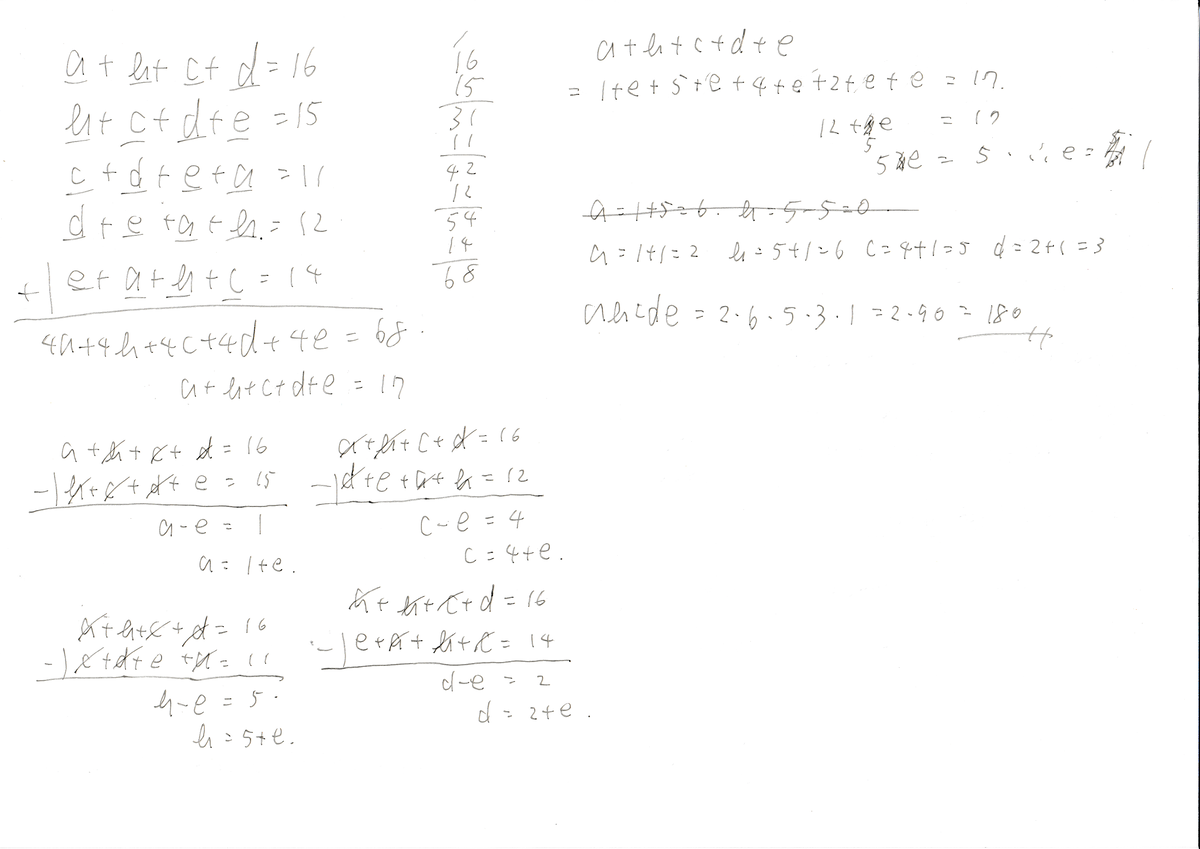 a + b + c + d = 16
b + c + d + e = 15
c + d + e + a = 11
d + e + a + b = 12
+) e + a + b + c = 14
4a + 4b + 4c + 4d + 4e = 68.
a + b + c + d + e = 17
16
15
31
11
42
12
54
14
68
a + b + c + d = 16
-) b + c + d + e = 15
a - e = 1
a = 1 + e.
a + b + c + d = 16
-) d + e + a + b = 12
c - e = 4
c = 4 + e.
a + b + c + d = 16
-) c + d + e + a = 11
b - e = 5.
b = 5 + e.
a + b + c + d = 16
-) e + a + b + c = 14
d - e = 2
d = 2 + e.
a + b + c + d + e
= 1 + e + 5 + e + 4 + e + 2 + e + e = 17.
12 + 5e = 17
5e = 5. ∴ e = 1
a = 1 + 5 = 6. b = 5 - 5 = 0.
a = 1 + 1 = 2 b = 5 + 1 = 6 c = 4 + 1 = 5 d = 2 + 1 = 3
abcde = 2·6·5·3·1 = 2·90 = 180